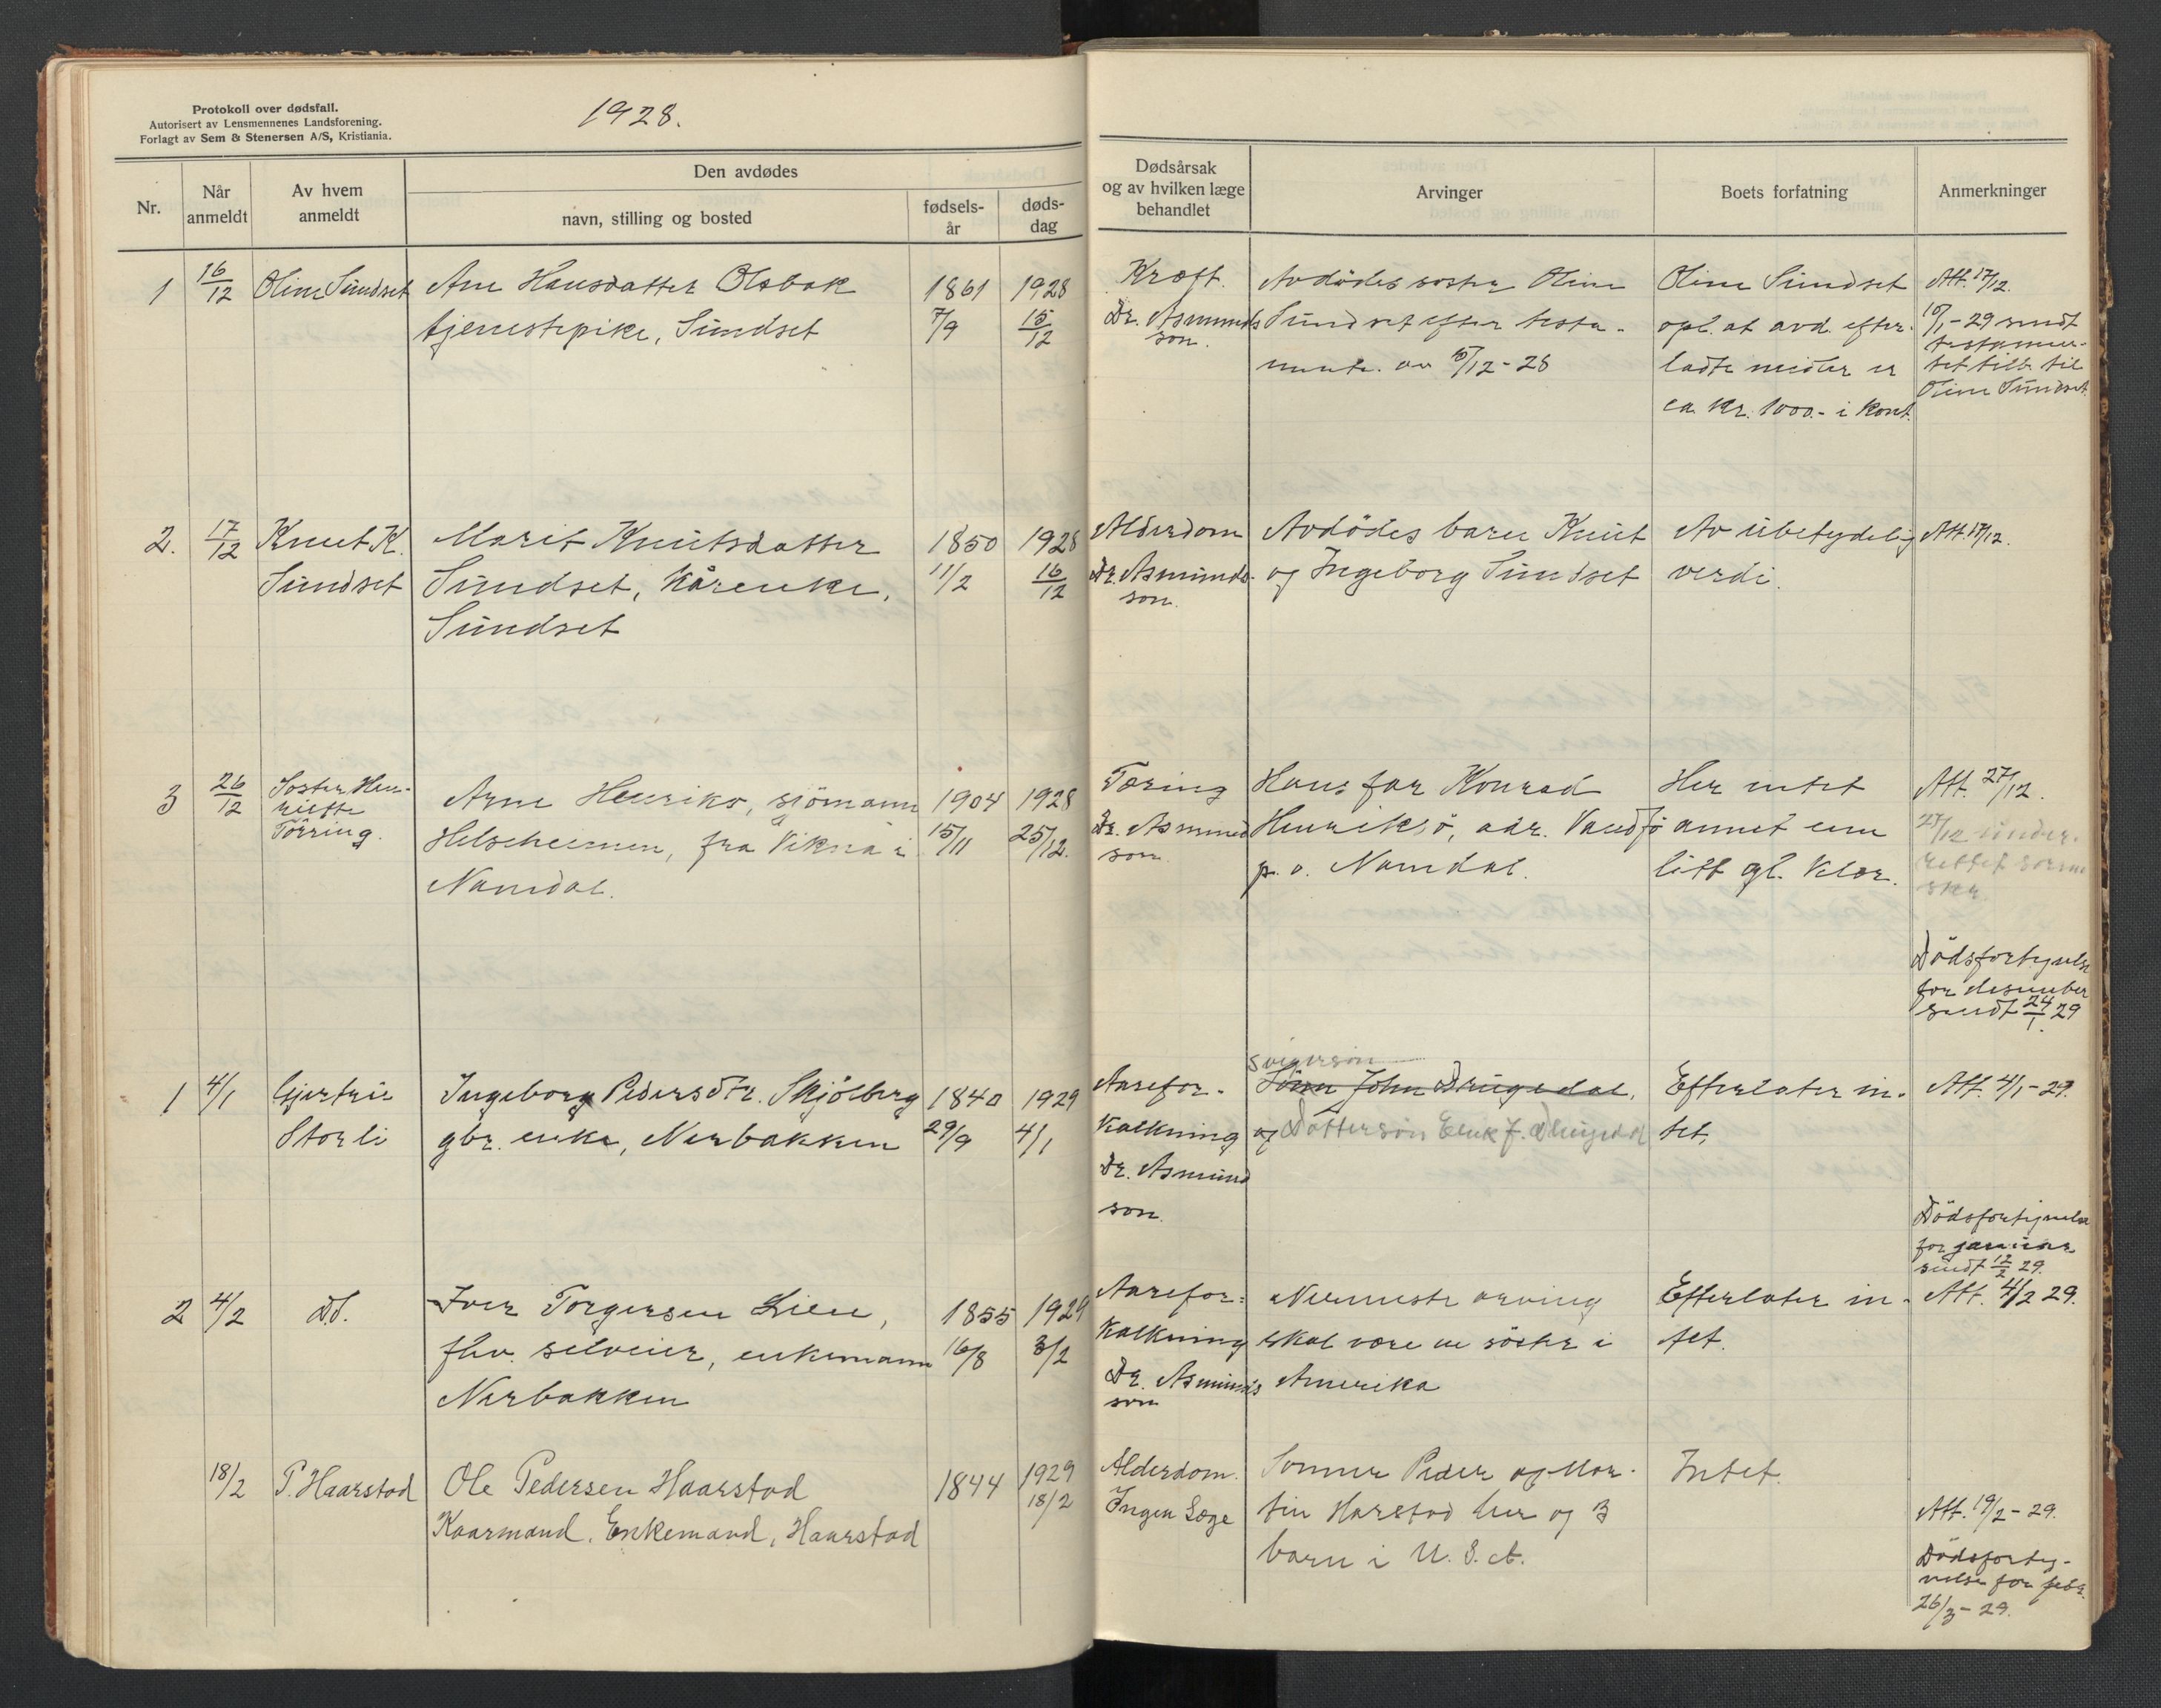 Protokoll over dødsfall.
Autorisert av Lensmennenes Landsforening.
Forlagt av Sem & Stenersen A/S, Kristiania.
1928.
Nr.
Når
anmeldt
Av hvem
anmeldt
Den avdødes
navn, stilling og bosted
fødsels-
år
døds-
dag
Dødsårsak
og av hvilken læge
behandlet
Arvinger
Boets forfatning
Anmerkninger
1
16/12
Oline Sundset
Ane Hansdatter Olsbak
tjenestepike, Sundset
1861
7/9
1928
15/12
Kræft.
Dr. Asmunds
son.
Avdødes søster Oline
Sundset efter testa-
mente. av 10/12-28
Oline Sundset
opl. at avd. efter-
ladte midler er
ca. kr. 1000.- i kont.
Att. 17/12.
-29 sendt
testamen-
tet tilb. til
Oline Sundset.
2.
17/12
Knut K.
Sundset
Marit Knutsdatter
Sundset, kårenke,
Sundset
1850
11/2
1928
16/12
Alderdom
Dr. Asmunds-
son.
Avdødes barn Knut
og Ingeborg Sundset
Av ubetydelig
verdi.
Att. 17/12.
3
26/12
Søster Hen-
riette
Tørring.
Arne Henriksø, sjømann
Helseheimen, fra Vikna i
Namdal.
1904
15/11
1928
25/12.
Tæring
Dr. Asmund
son.
Hans far Konrad
Henriksø, adr. Vandsø
p. o. Namdal.
Her intet
annet enn
litt gl. klær.
Att. 27/12.
27/12 under-
rettet
Dødsfortegnelse
for desember
sendt 24/1 29
1
4/1
Gjertrud
Storli
Ingeborg Pedersdtr. Skjølberg
gbr. enke, Nerbakken
1840
29/9
1929
4/1
Aarefor-
kalkning
Dr. Asmund
son.
Svigersøn
Sønn John Drugudal.
og Dattersøn J. Drugudal
Efterlater in-
tet,
Att. 4/1-29.
Dødsfortegnelse
for januar
sendt 12/2 29.
2
4/2
D.s.
Iver Torgersen Lien,
fhv. selveier, enkemann
Nerbakken
1855
16/8
1929
3/2
Aarefor-
kalkning
Dr. Asmunds
son
Nermeste arving
skal være en søster i
Amerika
Efterlater in-
tet.
Att. 4/2 29.
18/2
P. Haarstad
Ole Pedersen Haarstad
Kaarmand. Enkemand, Haarstad
1844
1929
18/2
Alderdom.
Ingen Læge
Sønner Peder og Mar-
tin Harstad her og 3
barn i U. S. A.
Intet.
Att. 19/2-29.
Dødsforteg-
nelse for febr.
26/3-29.